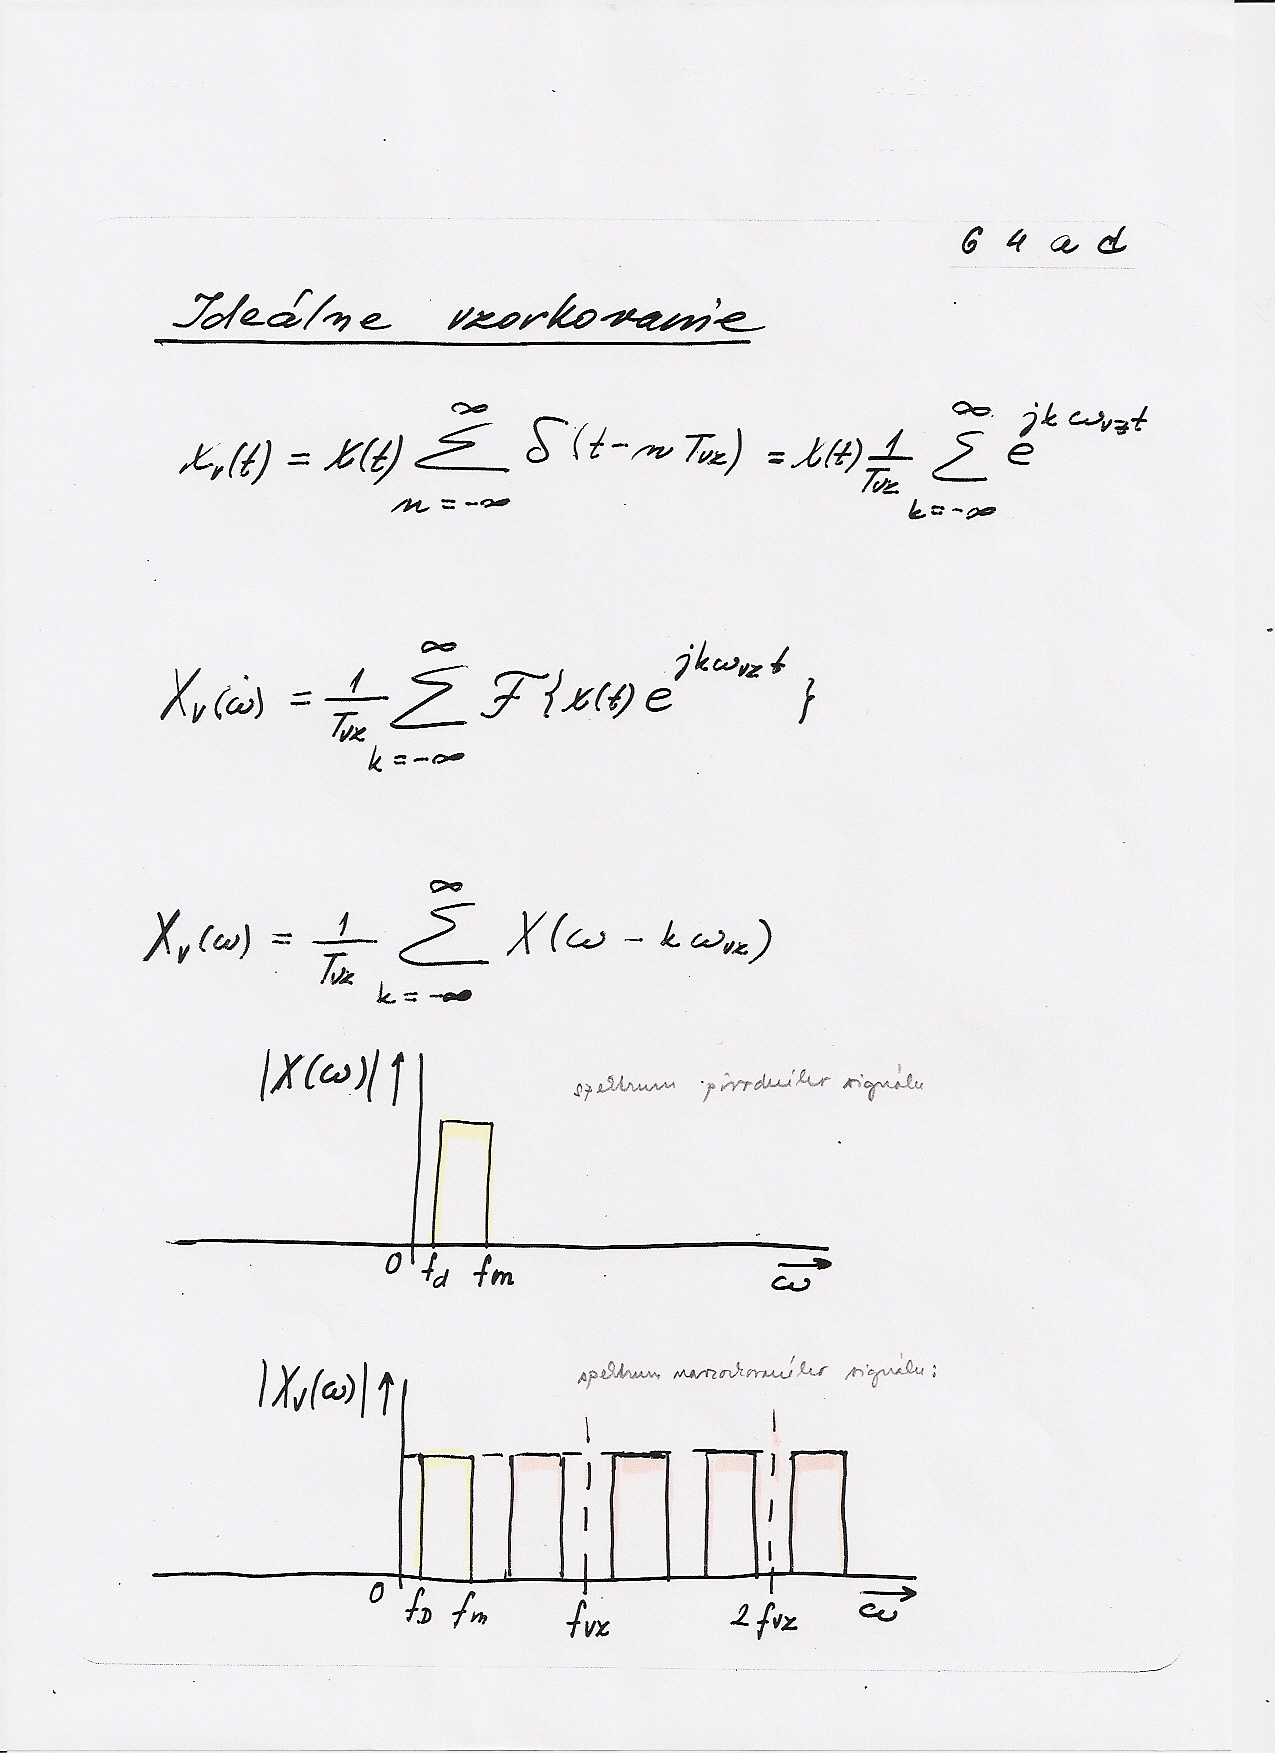 6 4 a d
Ideálne vzorkovanie
x_v(t) = x(t) ∑_{n=-∞}^{∞} δ(t-nT_{vz}) = x(t) \frac{1}{T_{vz}} ∑_{k=-∞}^{∞} e^{jkω_{vz}t}
X_v(ω) = \frac{1}{T_{vz}} ∑_{k=-∞}^{∞} ℱ{x(t) e^{jkω_{vz}t}}
X_v(ω) = \frac{1}{T_{vz}} ∑_{k=-∞}^{∞} X(ω - kω_{vz})
|X(ω)| ↑
spektrum pôvodného signálu
0 f_d f_m ω
|X_v(ω)| ↑
spektrum navzorkovaného signálu:
0 f_D f_m f_{vz} 2f_{vz} ω